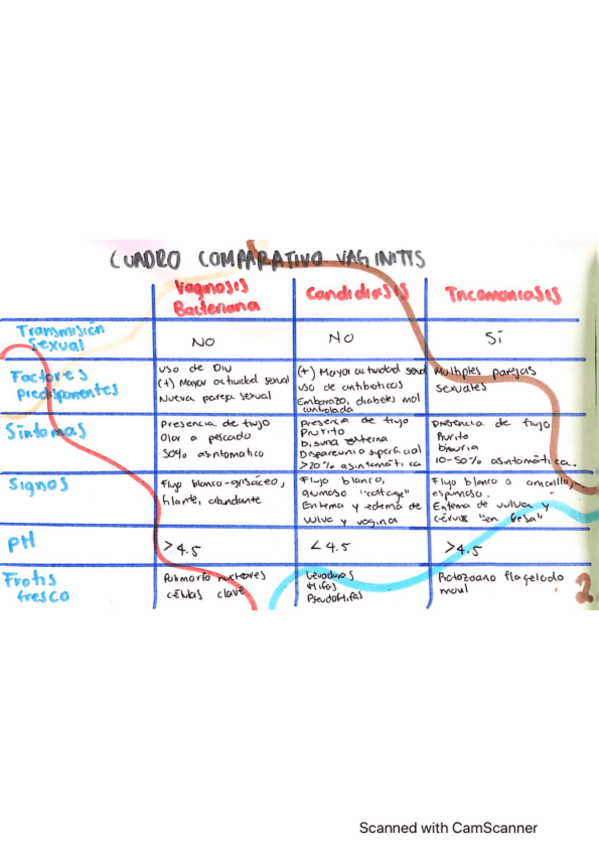 CUADRO COMPARATIVO VAGINITIS
Vaginosis Bacteriana
Candidiasis
Tricomoniasis
Transmisión Sexual
NO
NO
SÍ
Factores predisponentes
uso de DIU
(+) Mayor actividad sexual
Nueva pareja sexual
(+) Mayor actividad sexual
uso de antibioticos
Embarazo, diabetes mal controlada
Multiples parejas
sexuales
Síntomas
Presencia de flujo
Olor a pescado
50% asintomatico
presencia de flujo
Prurito
Disuria externa
Dispareunia superficial
>20% asintomática
Presencia de flujo
Prurito
10-50% asintomática.
Signos
Flujo blanco-grisáceo,
filante, abundante
Flujo blanco,
grumoso "cottage"
Eritema y edema de
vulva y vagina
Flujo blanco o amarillo,
espumoso.
Eritema de vulva y
cérvix "en fresa"
pH
>4.5
<4.5
>4.5
Frotis fresco
células clave
Levaduras
Hifas
Pseudohifas
Protozoario flagelado
2
Scanned with CamScanner